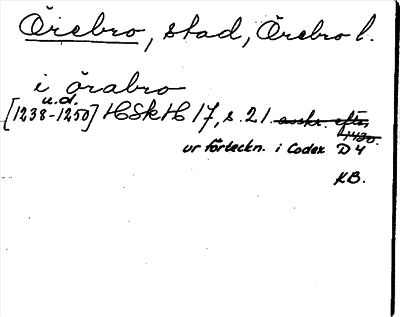 Örebro, stad, Örebro l.
i örabro
u.d.
[1238-1250] HSkH 17, s. 21. avskr. efter
1430.
ur förteckn. i Codex D 4
KB.